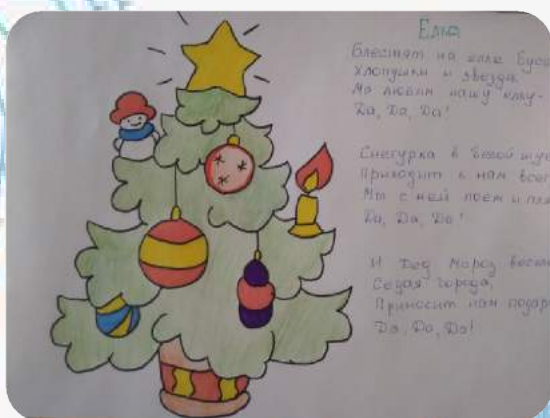 Елка
Блестят на елке бусы
Хлопушки и звезда
Мы любим нашу елку-
Да, Да, Да!
Снегурка в белой
Приходит к нам
Мы с ней поем и
Да, Да, Да!
И Дед Мороз
Седая
Приносит нам
Да, Да, Да!